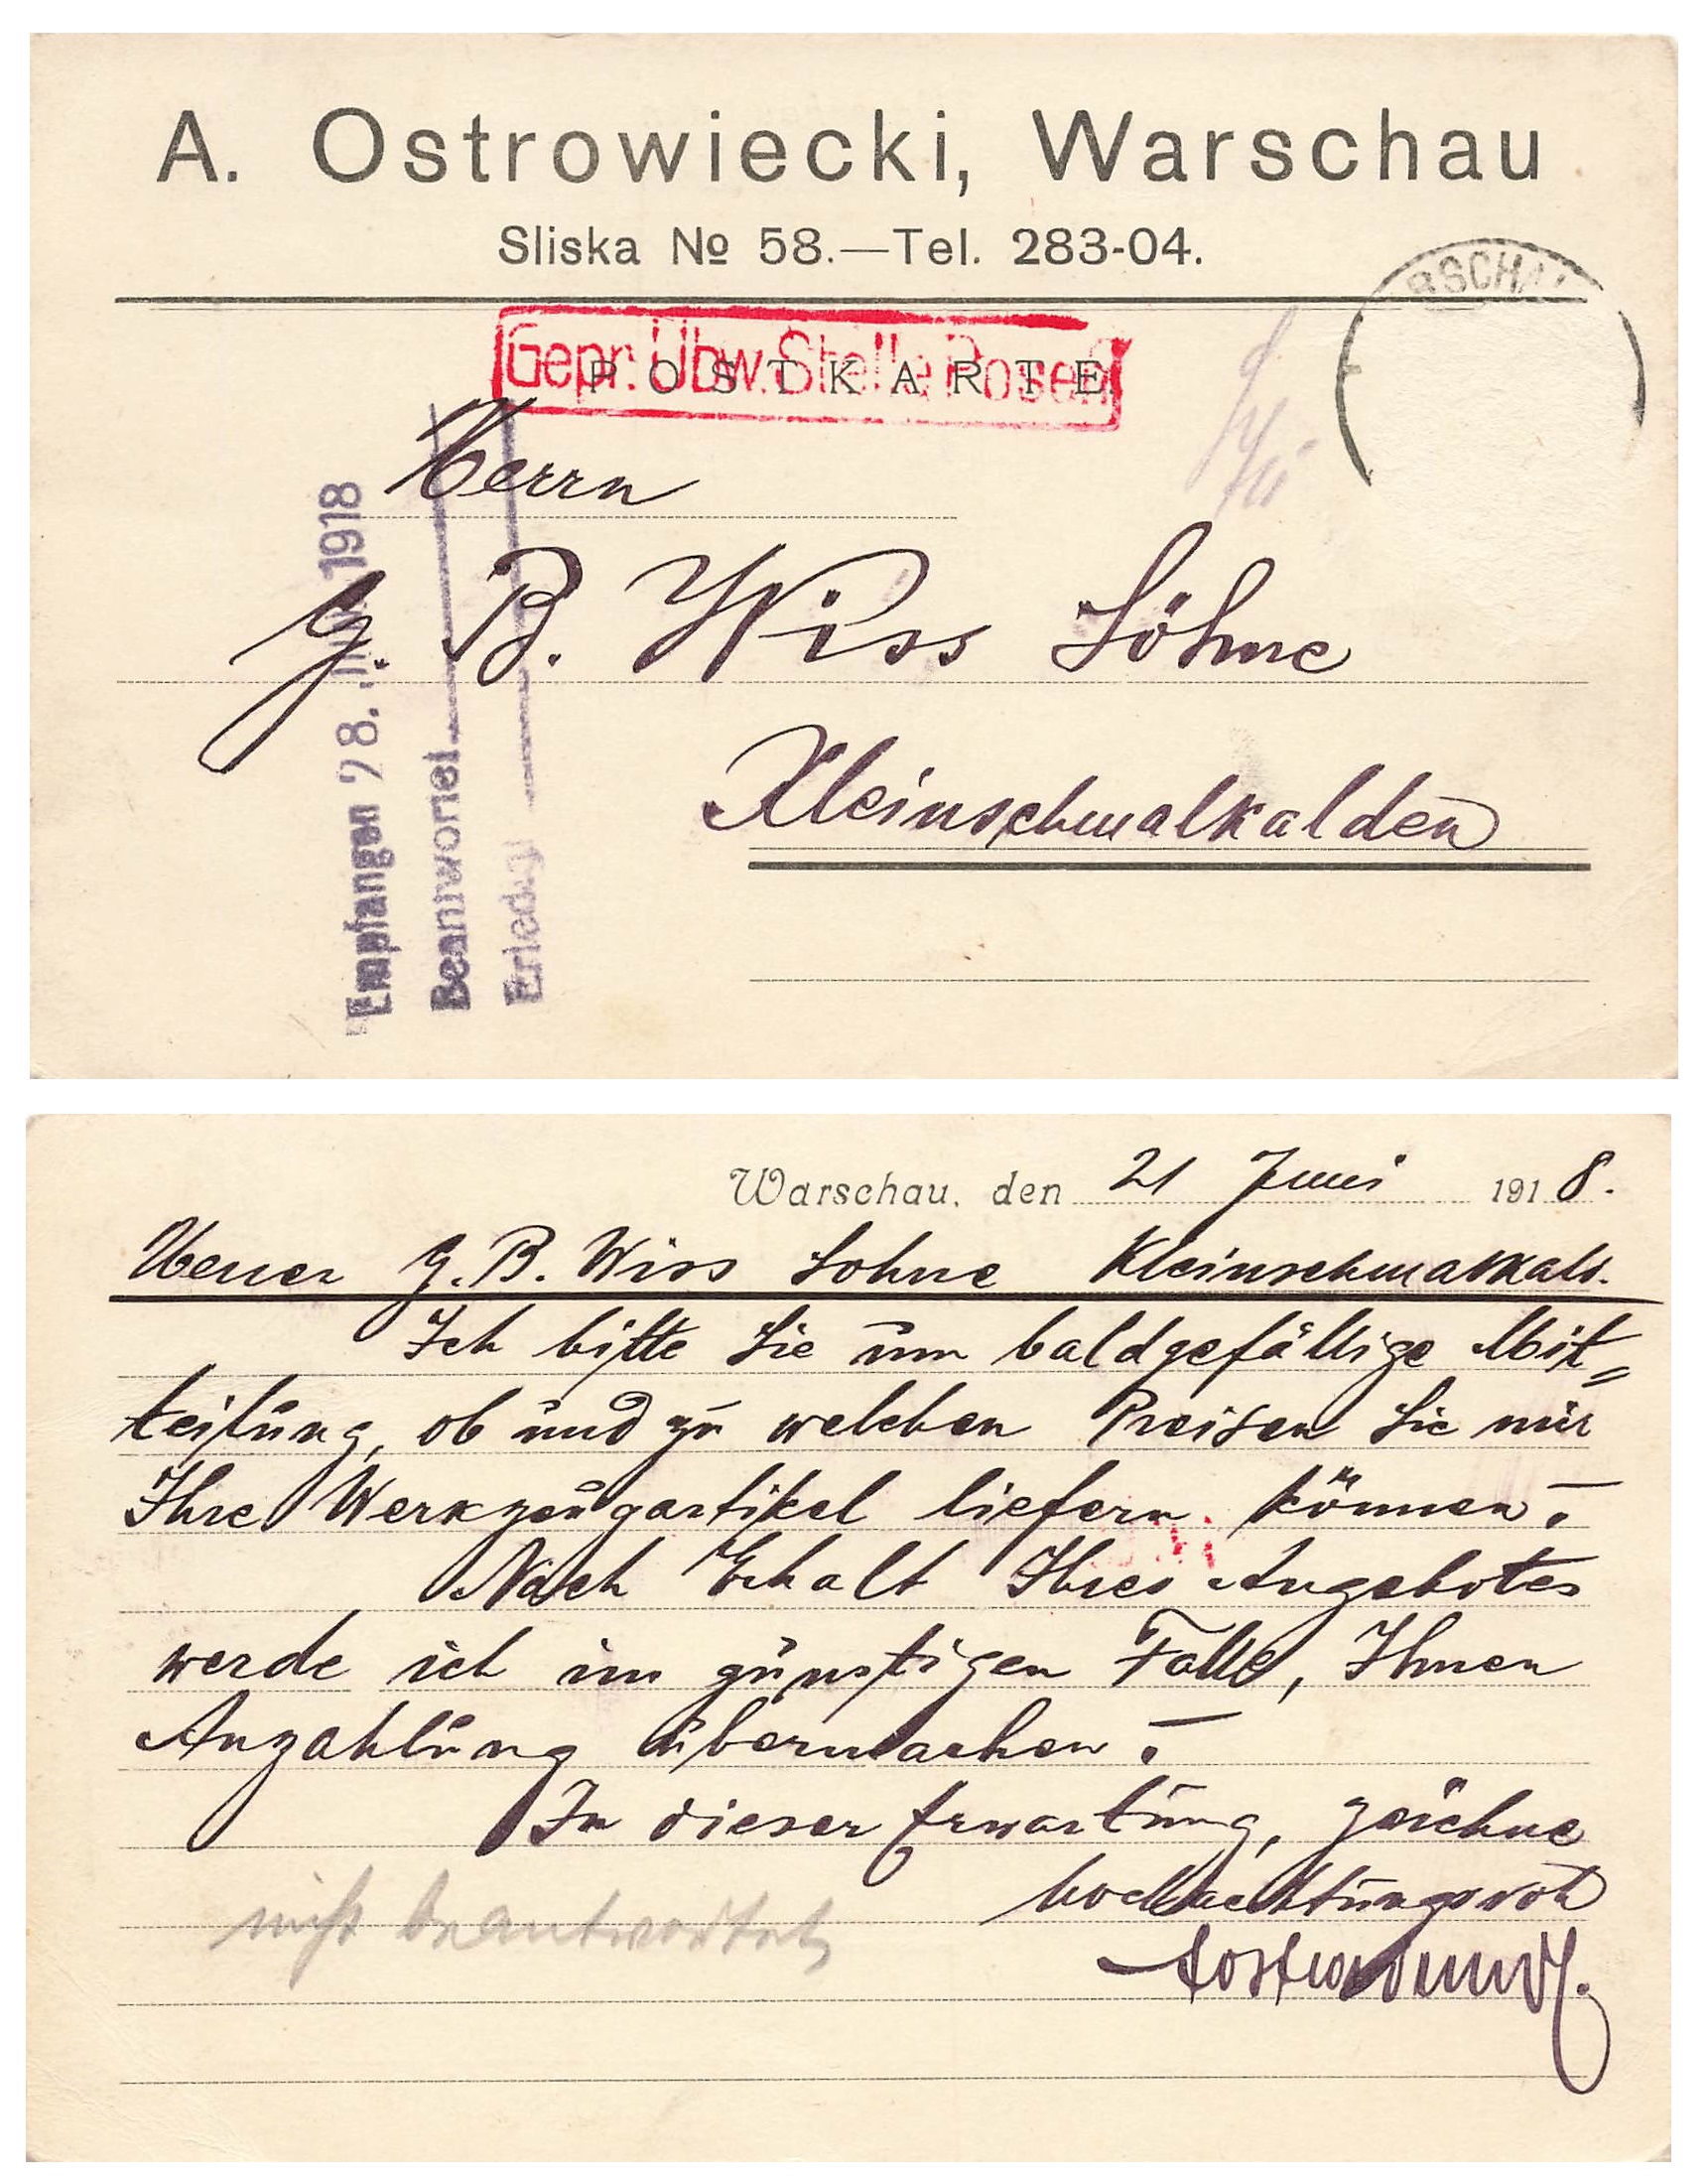 A. Ostrowiecki, Warschau
Sliska № 58.—Tel. 283-04.
RSCHAU
Gepr. Übw. Stelle Posen
POSTKARTE
Herrn
J. B. Wiss Söhne
Kleinschmalkalden
Empfangen 28. JUN. 1918
Beantwortet
Erledigt
Warschau, den 21 Juni 1918.
Herren J. B. Wiss Söhne Kleinschmalkald.
Ich bitte Sie um baldgefällige Mit=
teilung, ob und zu welchen Preisen Sie mir
Ihre Werkzeugartikel liefern können.
Nach Erhalt Ihres Angebotes
werde ich im günstigen Falle, Ihnen
Anzahlung übermachen.
In dieser Erwartung, zeichne
hochachtungsvoll
nicht beantwortet